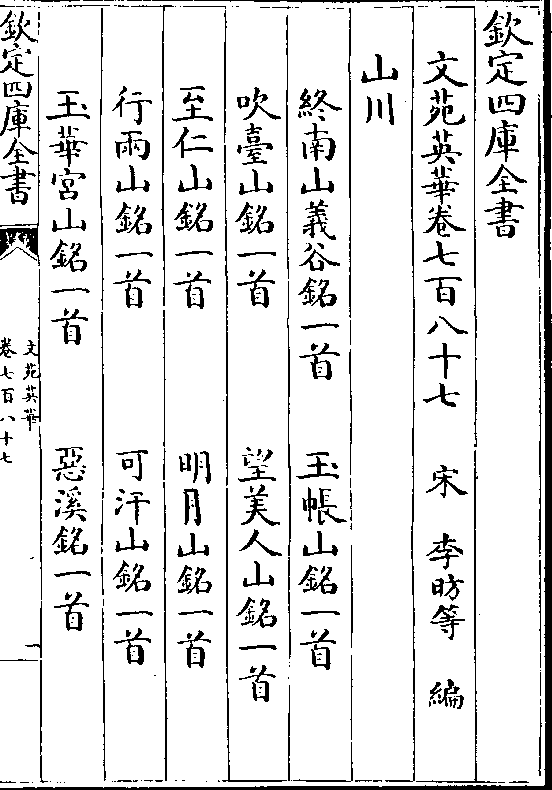 欽定四庫全書
文苑英華卷七百八十七　宋　李昉等　編
山川
終南山義谷銘一首　玉帳山銘一首
吹臺山銘一首　望美人山銘一首
至仁山銘一首　明月山銘一首
行雨山銘一首　可汗山銘一首
玉華宮山銘一首　惡溪銘一首
欽定四庫全書
文苑英華
卷七百八十七
一